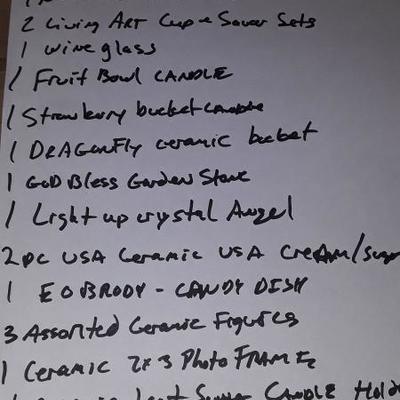 2 Living ART Cup & Saucer Sets
1 wine glass
1 Fruit Bowl CANDLE
1 Strawberry bucket candle
1 DRAGonFly ceramic bucket
1 GOD Bless Garden Stone
1 Light up crystal Angel
2pc USA Ceramic USA CREAM/Sugar
1 EO BRODY - CANDY DISH
3 Assorted Ceramic Figures
1 Ceramic 2x3 Photo FRAME
CANDLE Hold